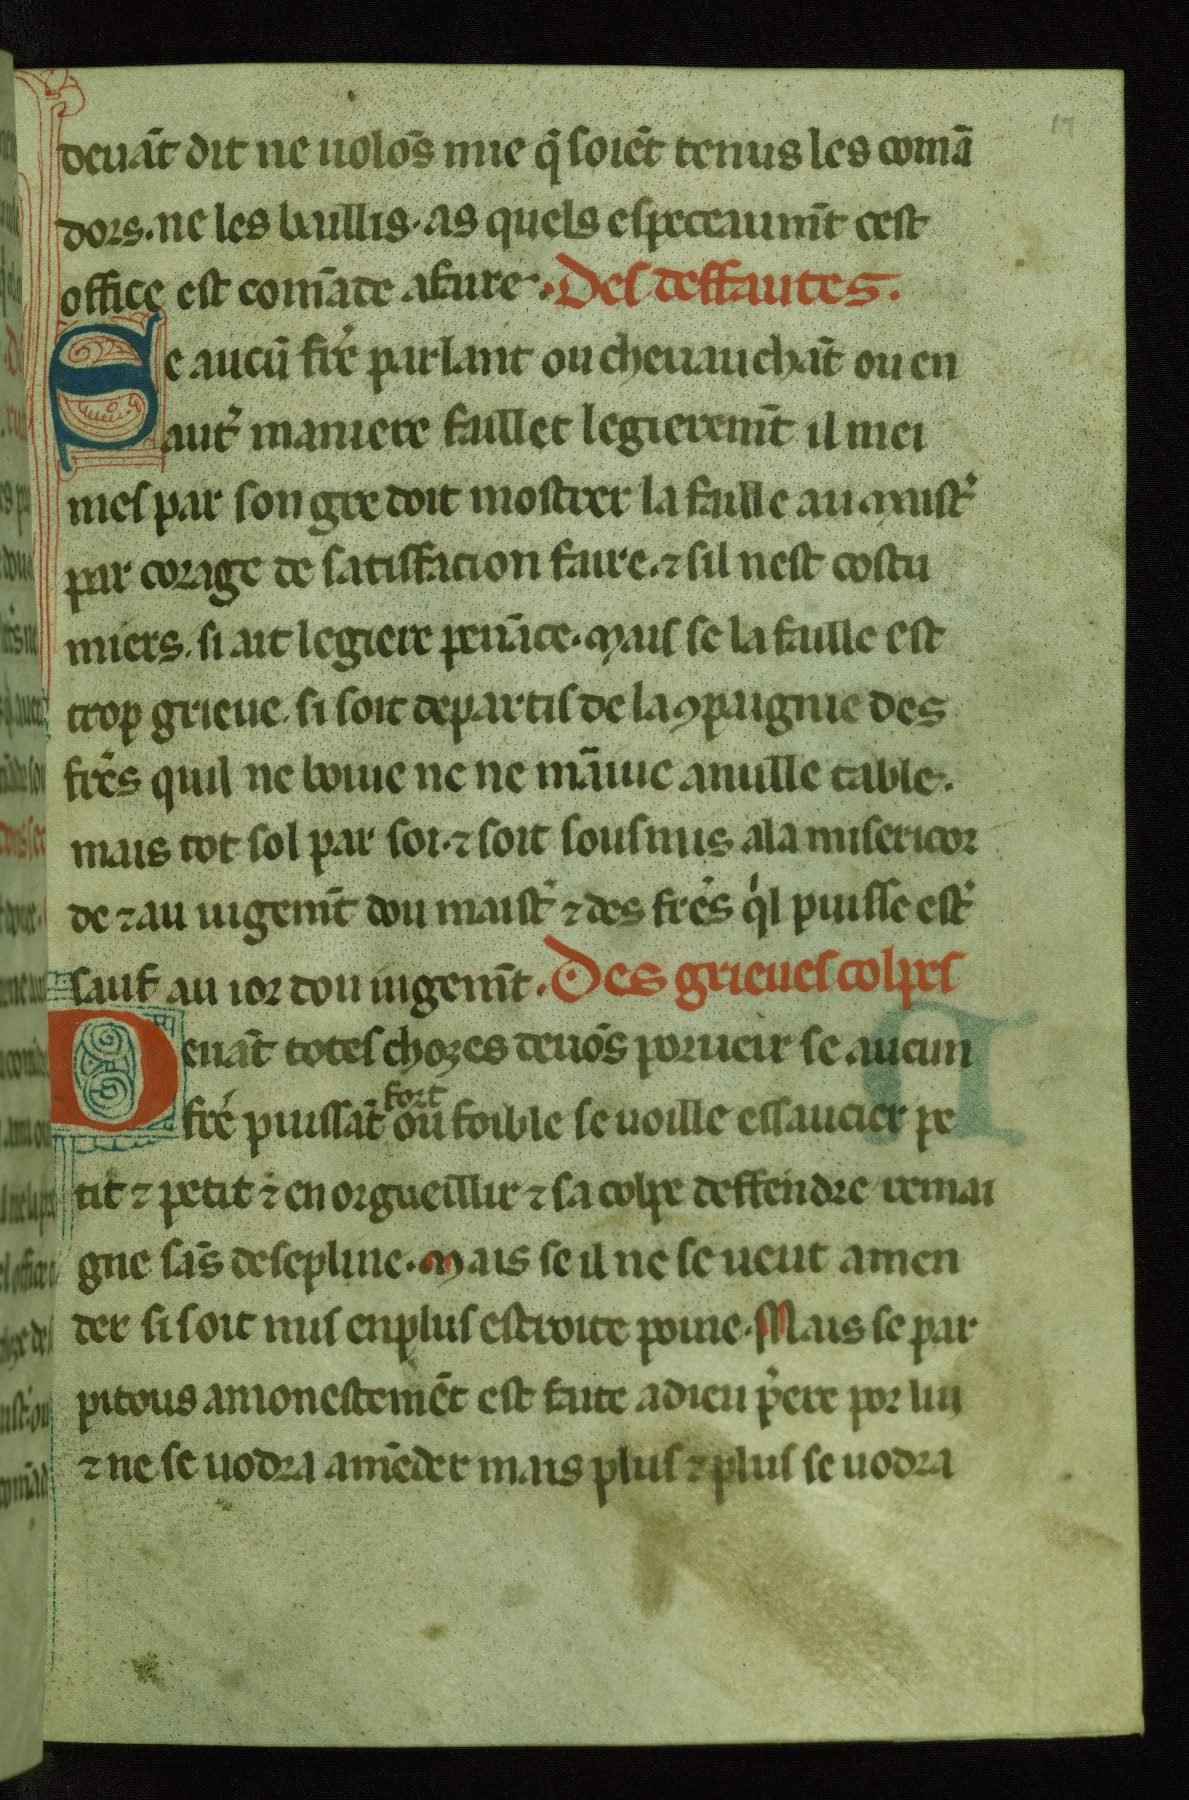 17
deuāt dit ne uolōs mie q̄ soiēt tenus les comā
dors. ne les baillis. as quels especeaumt̄ cest
office est comāde afaire. Des deffautes.
Se aucū fr̄e parlant ou cheuauchāt ou en
autr̄ maniere faillet legieremt̄ il mei
mes par son gre doit mostrer la faille au maistr̄
par corage de satisfacion faire. ⁊ sil nest costu
miers. si ait legiere penāce. Mais se la faille est
trop grieue. si soit departis de la ꝯpaignie des
fr̄es quil ne boiue ne ne māiue anuille table.
mais tot sol par soi. ⁊ soit sousmis ala misericor
de ⁊ au iugemt̄ dou maistr̄ ⁊ des fr̄es qͥl puisse estr̄
sauf au ior dou iugemt̄. Des grieues colpes
Deuāt totes chozes deuōs porueir se aucun
fr̄e puissāt fort ou foible se uoille essaucier pe
tit ⁊ petit ⁊ en orgueillir ⁊ sa colpe deffendre remai
gne sās desepline. Mais se il ne se ueut amen
der si soit mis enplus estroite poine. Mais se par
pitous amonestemēt est faite adieu p̄ere por lui
⁊ ne se uodra amēder mais plus ⁊ plus se uodra